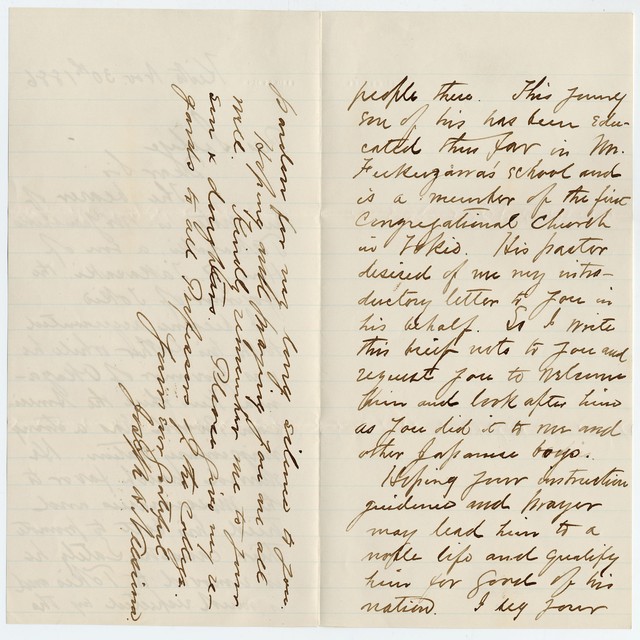 people there. This young
son of his has been edu-
cated thus far in Mr.
Fukuzawa's school and
is a member of the first
Congregational Church
in Tokio. His pastor
desired of me my intro-
ductory letter to you in
his behalf. So I write
this brief note to you and
request you to welcome
him and look after him
as you did it to me and
other Japanese boys.
Hoping your instruction
guidence and prayer
may lead him to a
noble life and quallify
him for good of his
nation. I beg your
pardon for my long silence to you.
Hoping and praying you are all
well. Kindly remember me to your
son & daughters. Please give my re-
gards to all Professors of the College.
Yours ever grateful
Joseph H. Neesima.